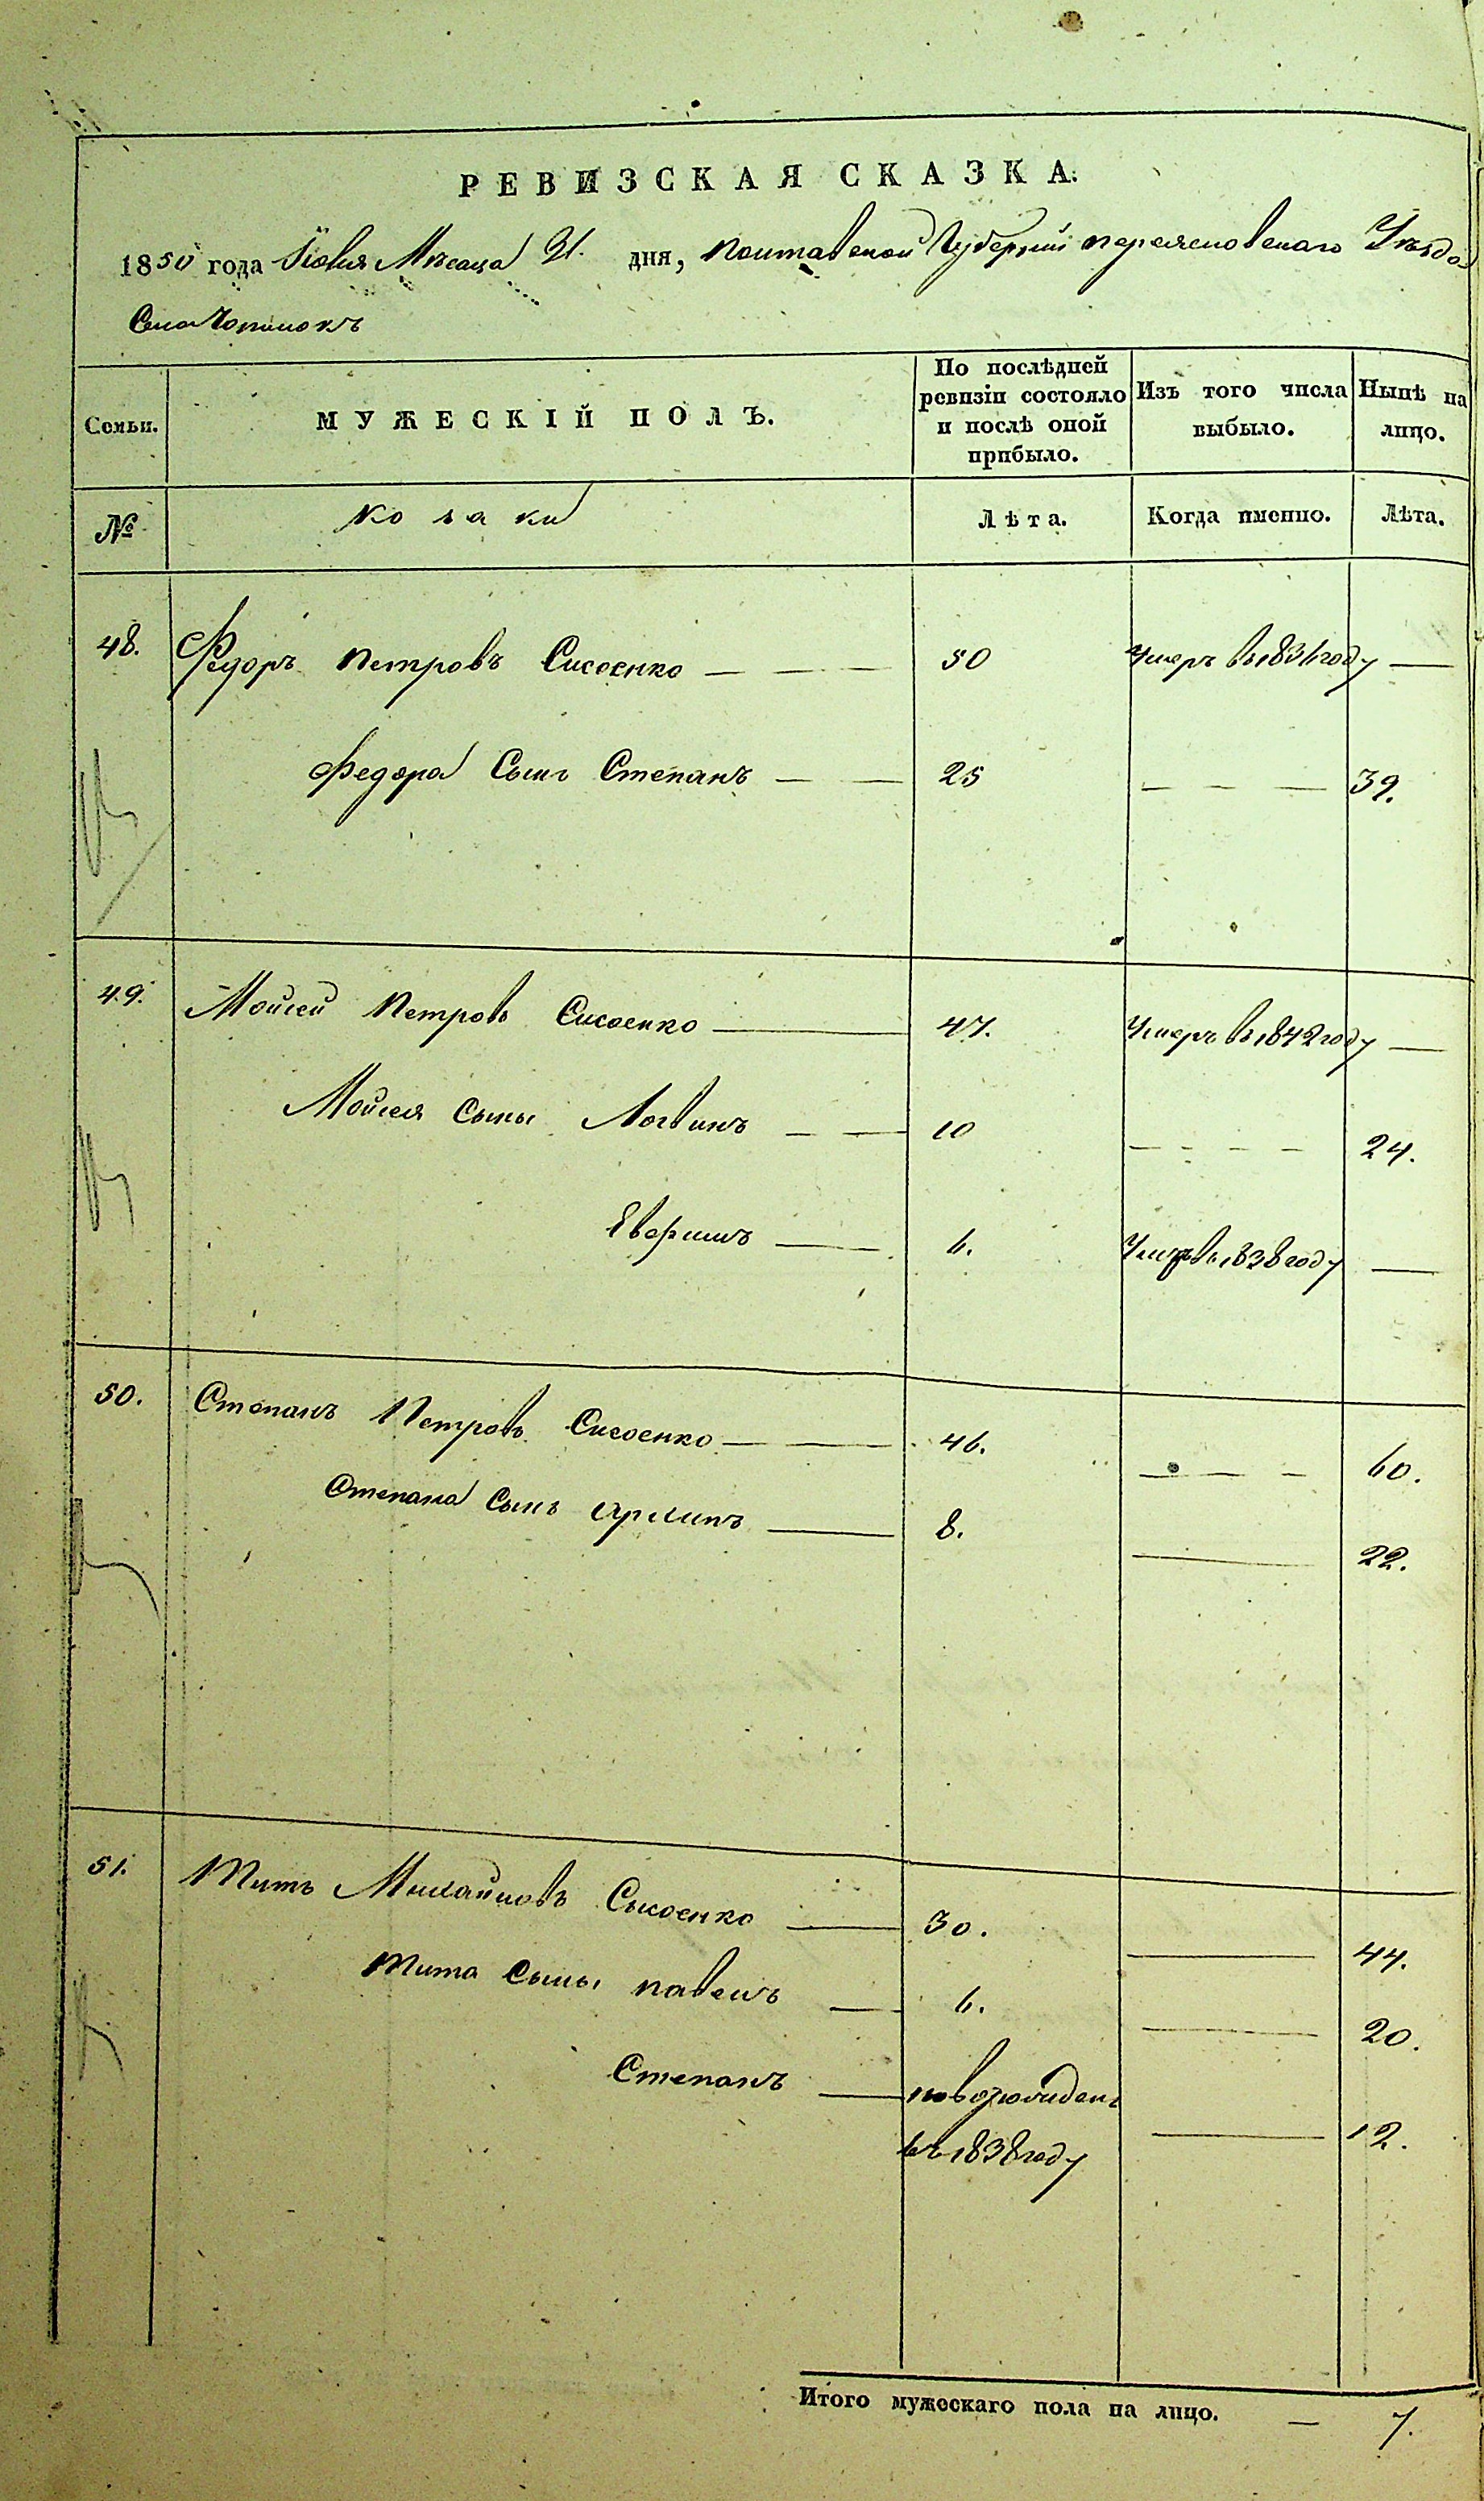 РЕВИЗСКАЯ СКАЗКА.
1850 года Іюля Мѣсяца 31. дня, Полтавской Губерніи Переясловскаго Уѣзда
Села Чопилокъ
Семьи. МУЖЕСКІЙ ПОЛЪ. По послѣдней ревизіи состояло и послѣ оной прибыло. Изъ того числа выбыло. Нынѣ на лицо.
№ Козаки Лѣта. Когда именно. Лѣта.
48. Федоръ Петровъ Сисоенко — — — 50 Умеръ въ 1836 году —
Федора Сынъ Степанъ — — 25 — — — 39.
49. Мойсей Петровъ Сисоенко — 47. Умеръ въ 1842 году —
Мойсея Сыны Логвинъ — — 10 — — — — 24.
6. Умеръ въ 1838 году —
50. Степанъ Петровъ Сисоенко — — 46. — — — 60.
Степана Сынъ — 8. — 22.
51. Титъ Михайловъ Сысоенко — 30. — 44.
Тита Сыны Павелъ — 6. — 20.
Степанъ — новорожденъ
въ 1838 году — 12.
Итого мужескаго пола на лицо. — 7.